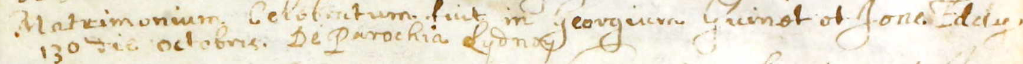 Matrimonium Celebratum fuit in Georgium Guinet et Jone Eddy
13o die octobris. De Parochia Lydney